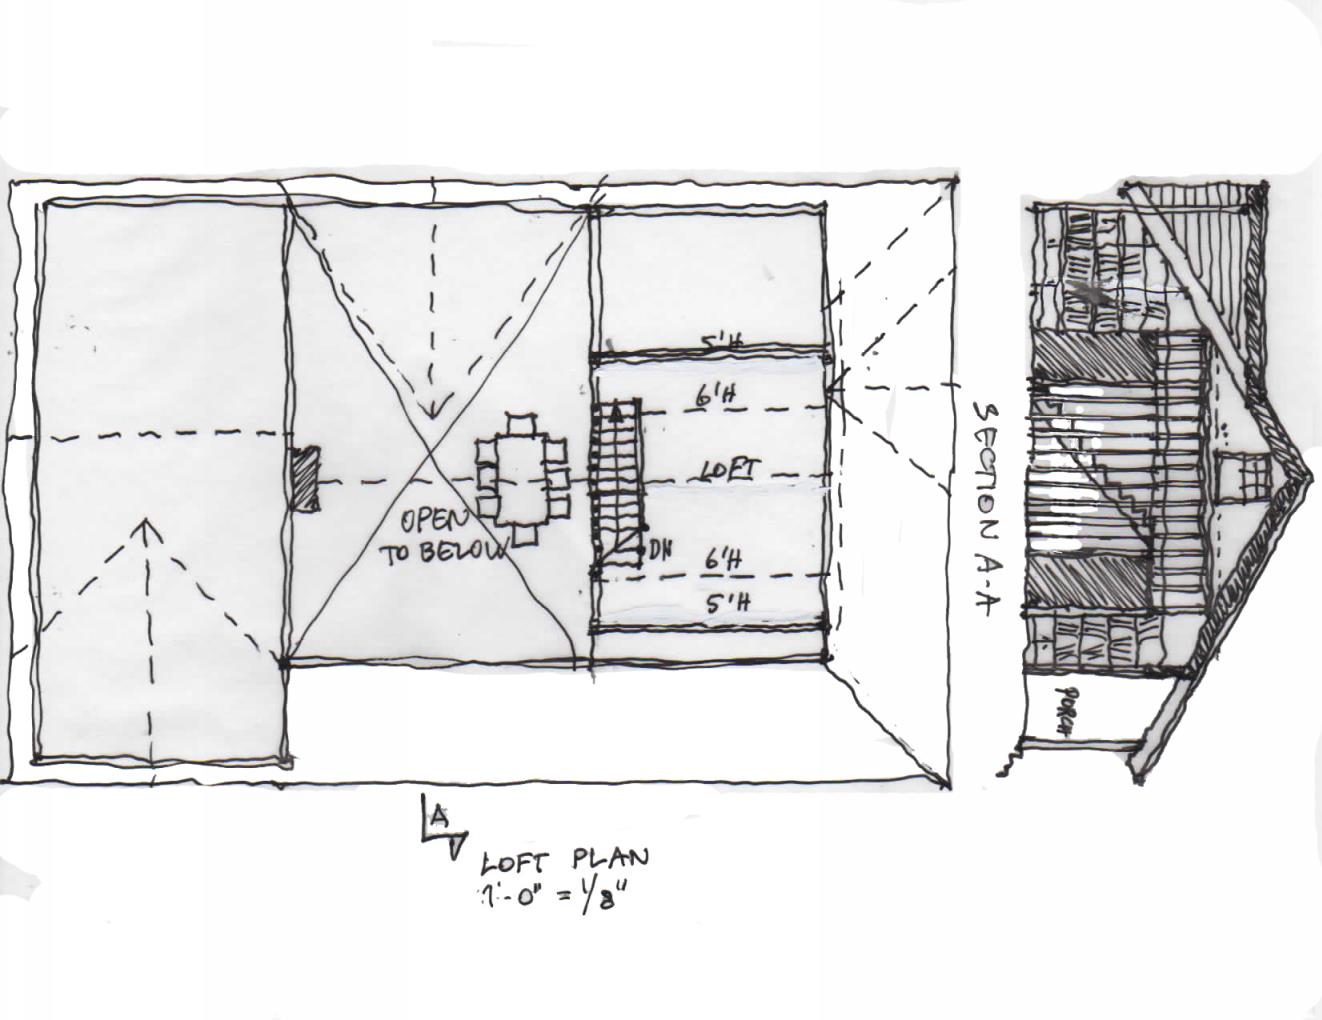 5'H
6'H
LOFT
OPEN
TO BELOW
DN
6'H
5'H
SECTION A-A
PORCH
A
LOFT PLAN
1'-0" = 1/8"